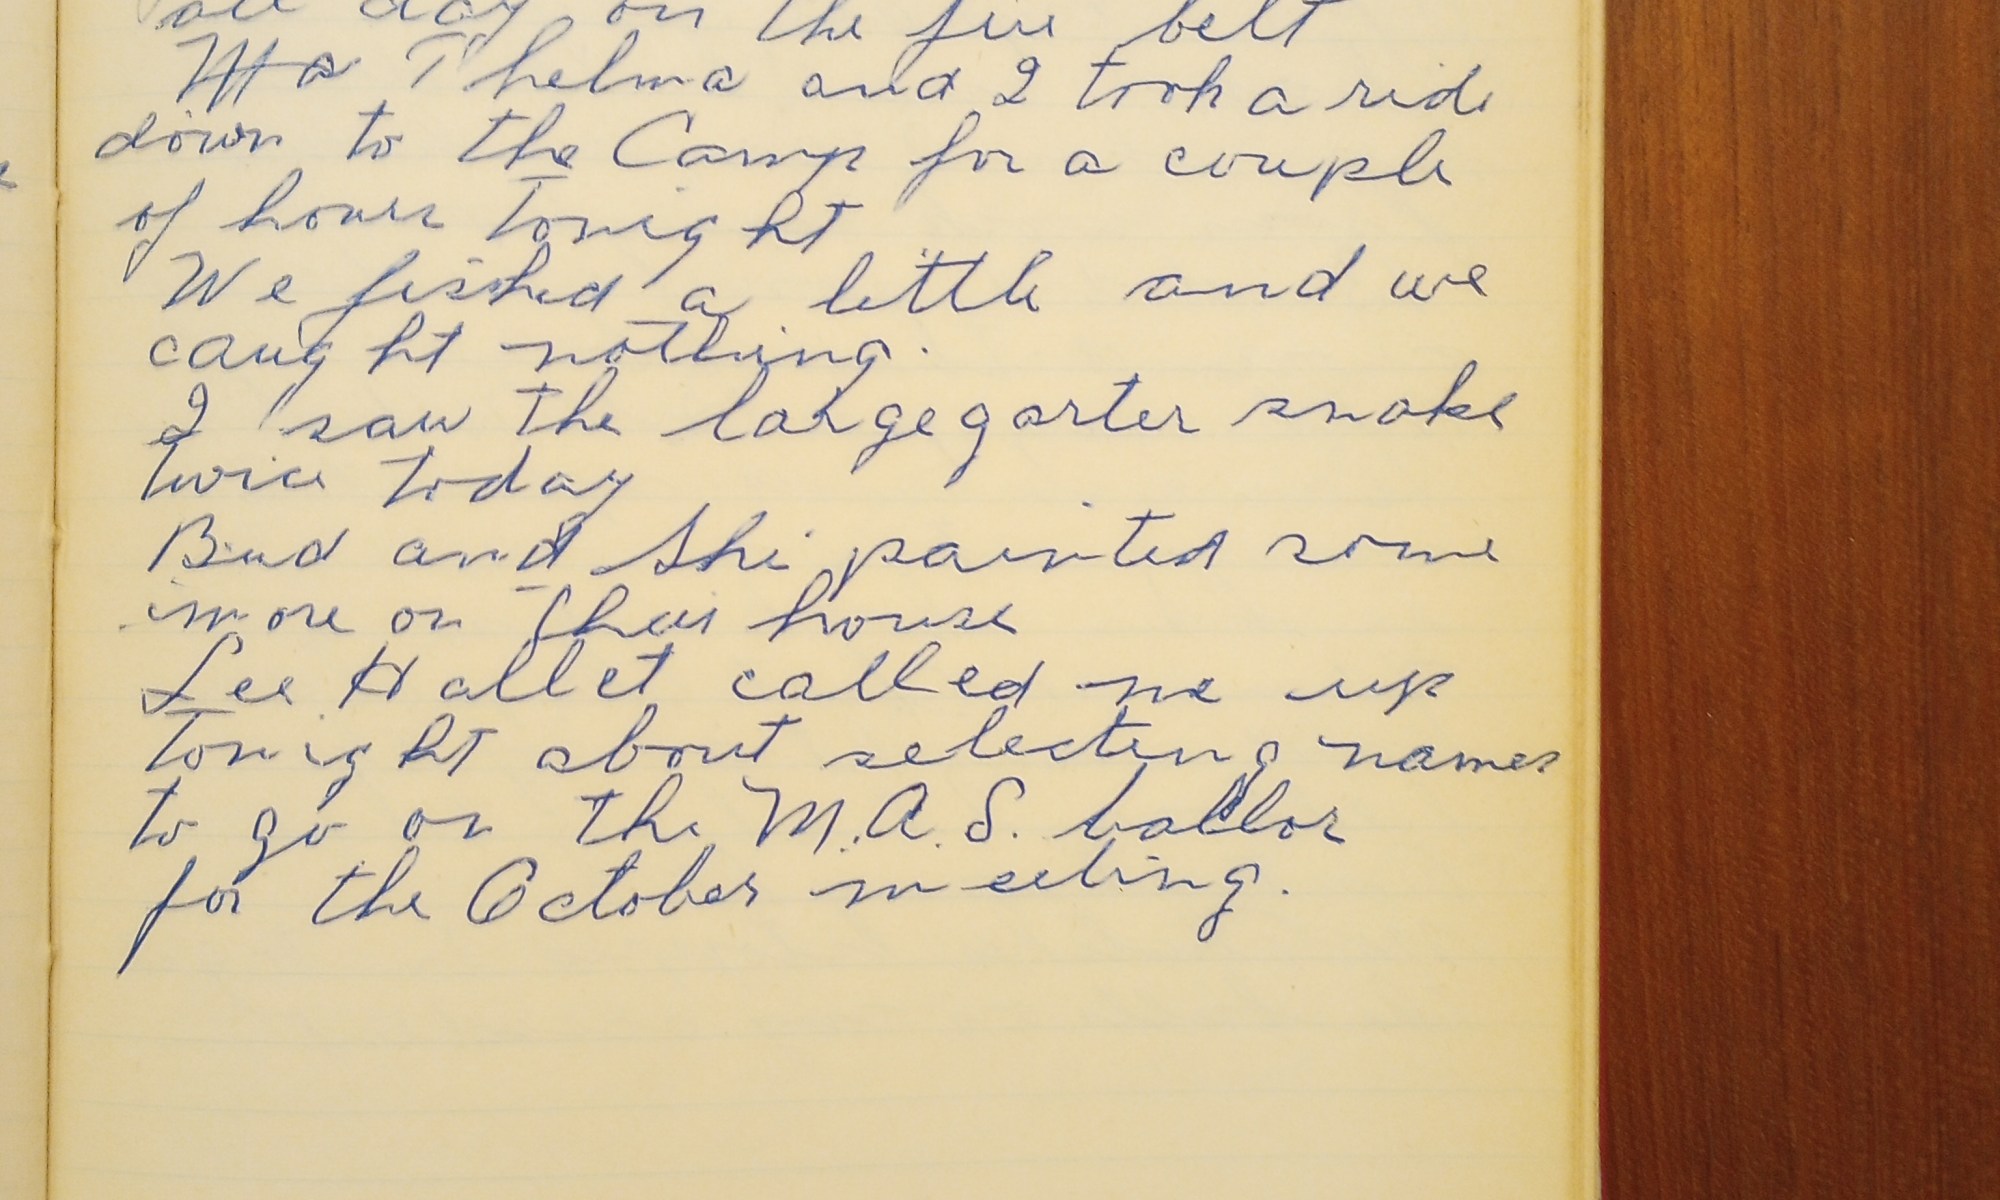 all day on the fire belt
Ma Thelma and I took a ride
down to the Camp for a couple
of hours tonight
We fished a little and we
caught nothing.
I saw the large garter snake
twice today
Bud and She painted some
more on their house
Lee Hallet called me up
tonight about selecting names
to go on the M.A.S. ballor
for the October meeting.